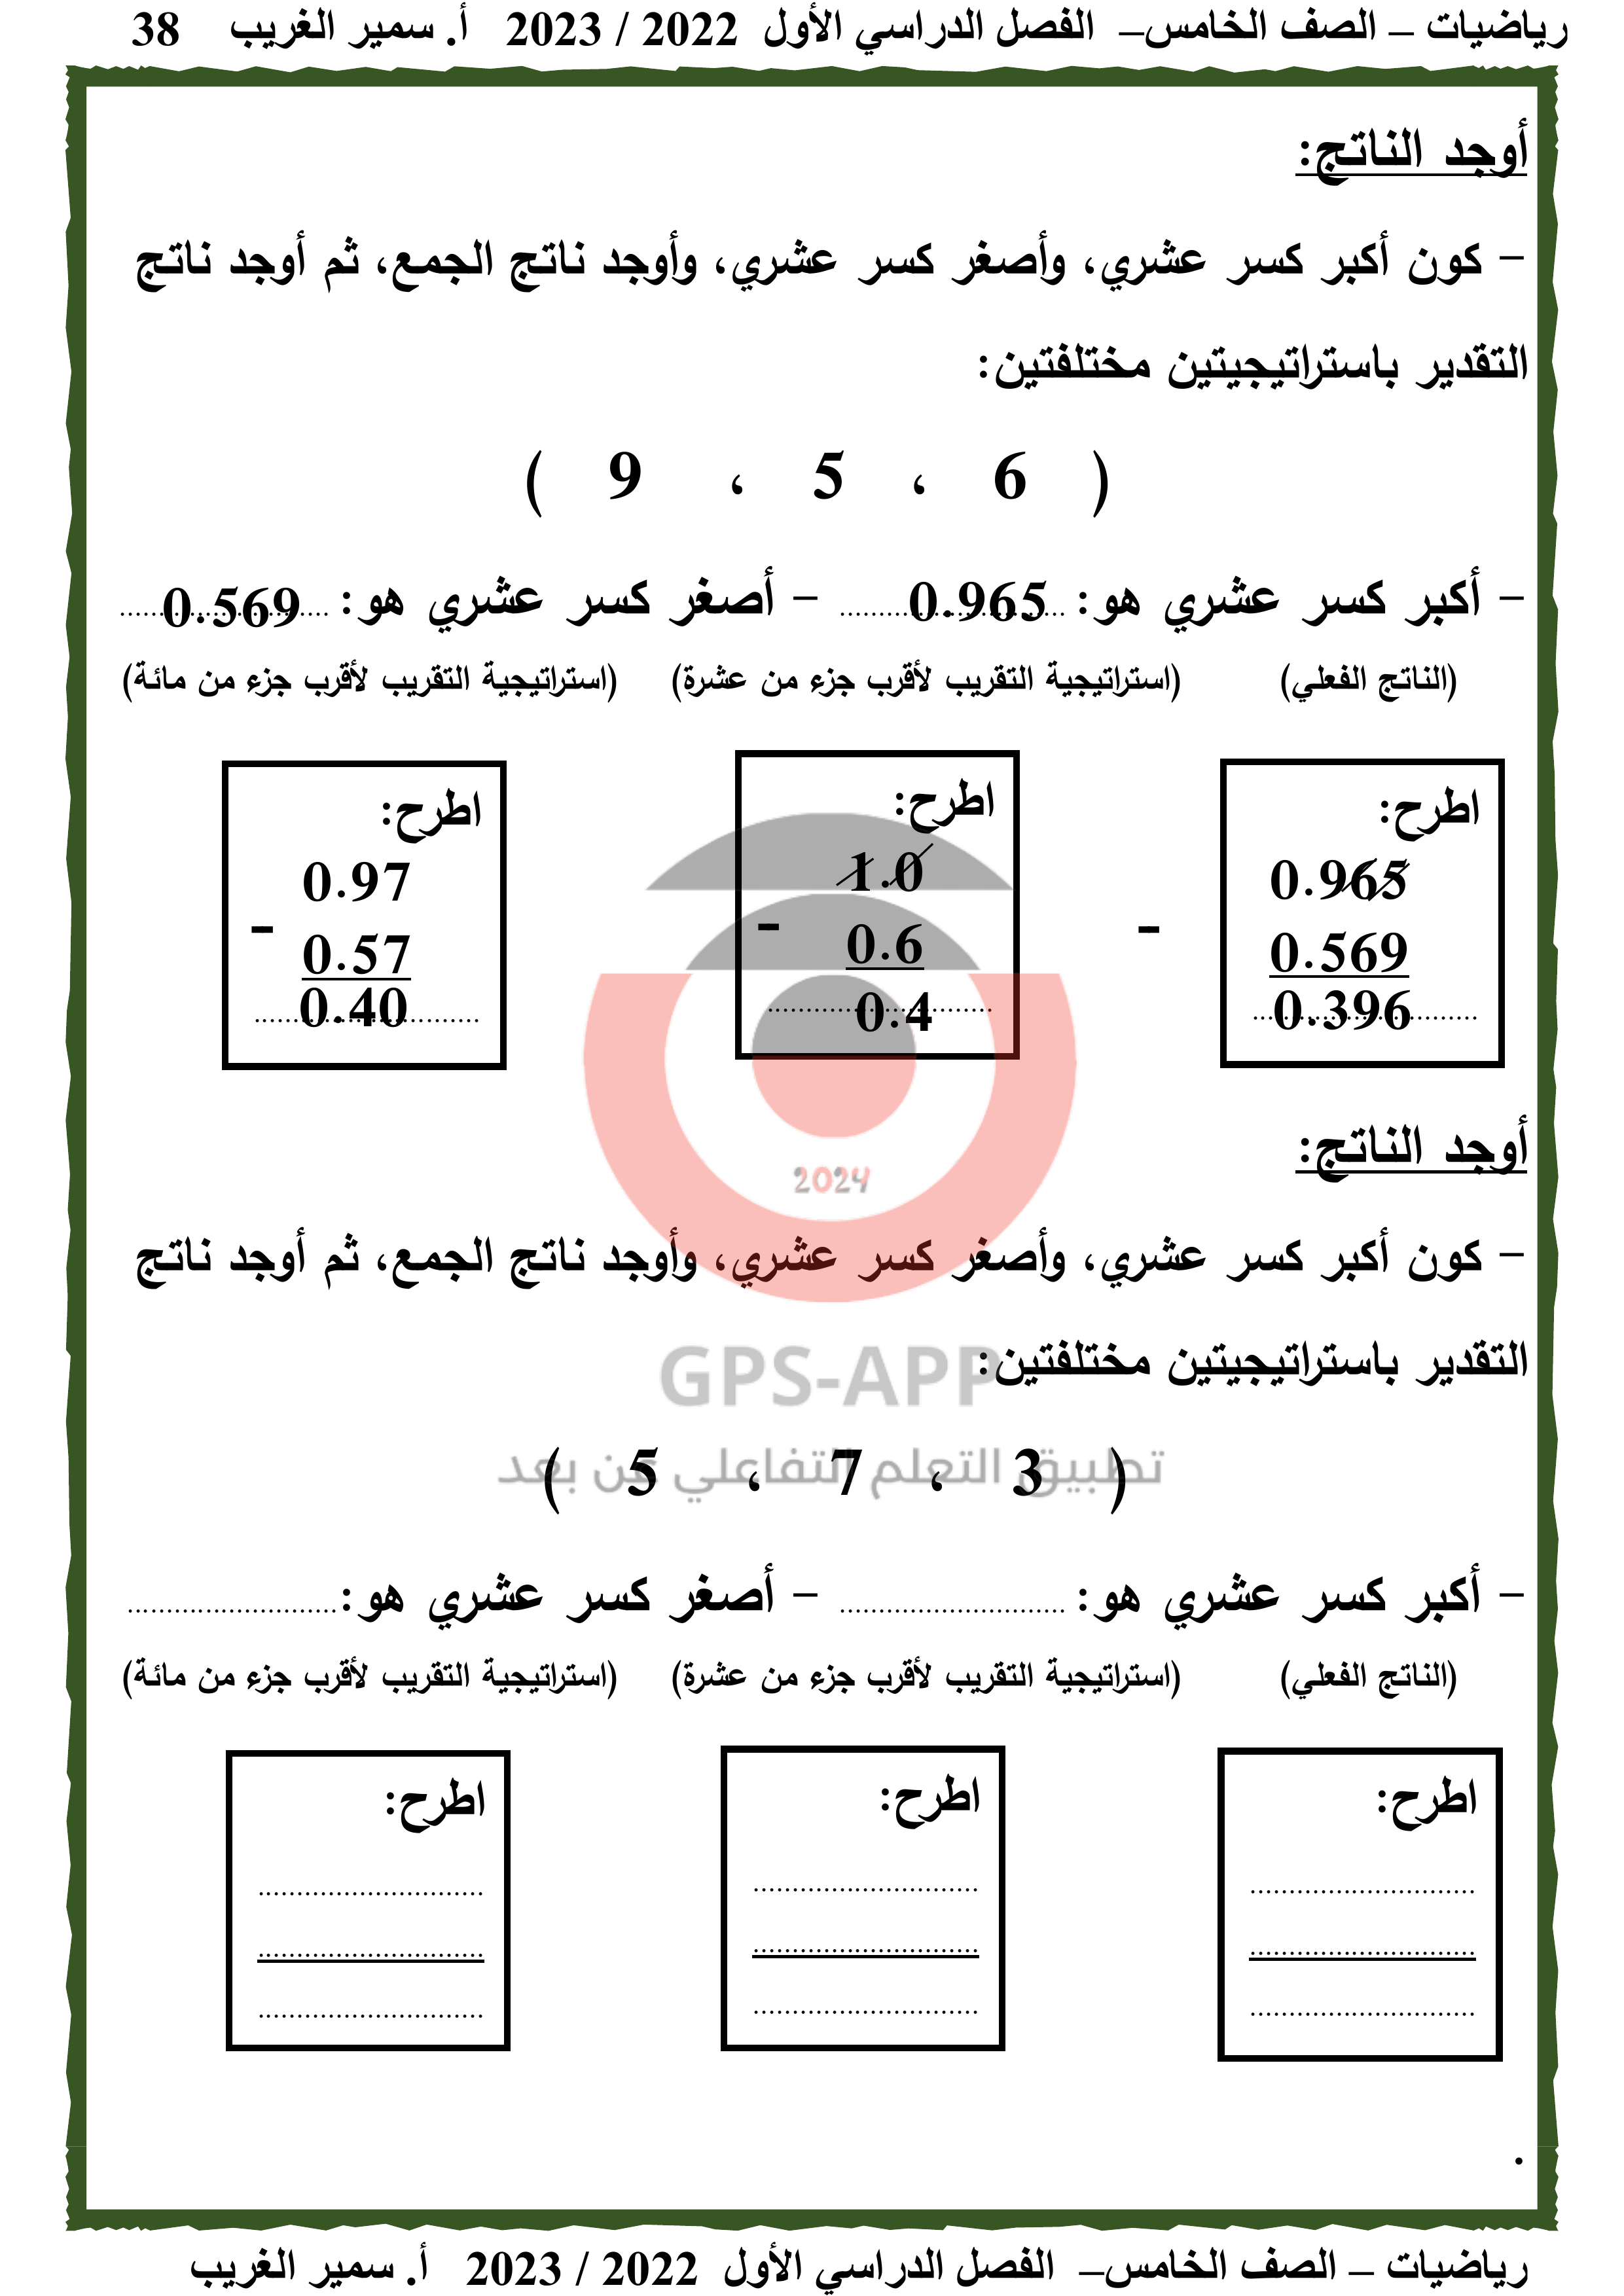 رياضيات – الصف الخامس– الفصل الدراسي الأول 2022 / 2023 أ. سمير الغريب 38
أوجد الناتج:
– كون أكبر كسر عشري، وأصغر كسر عشري، وأوجد ناتج الجمع، ثم أوجد ناتج
التقدير باستراتيجيتين مختلفتين:
( 6 ، 5 ، 9 )
– أكبر كسر عشري هو: 0.965 – أصغر كسر عشري هو: 0.569
(الناتج الفعلي) (استراتيجية التقريب لأقرب جزء من عشرة) (استراتيجية التقريب لأقرب جزء من مائة)
اطرح:
0.965
- 0.569
0.396
اطرح:
1.0
- 0.6
0.4
اطرح:
0.97
- 0.57
0.40
2024
أوجد الناتج:
– كون أكبر كسر عشري، وأصغر كسر عشري، وأوجد ناتج الجمع، ثم أوجد ناتج
التقدير باستراتيجيتين مختلفتين:
GPS-APP
تطبيق التعلم التفاعلي عن بعد
( 3 ، 7 ، 5 )
– أكبر كسر عشري هو: .......................... – أصغر كسر عشري هو:..........................
(الناتج الفعلي) (استراتيجية التقريب لأقرب جزء من عشرة) (استراتيجية التقريب لأقرب جزء من مائة)
اطرح:
اطرح:
اطرح:
.
رياضيات – الصف الخامس– الفصل الدراسي الأول 2022 / 2023 أ. سمير الغريب